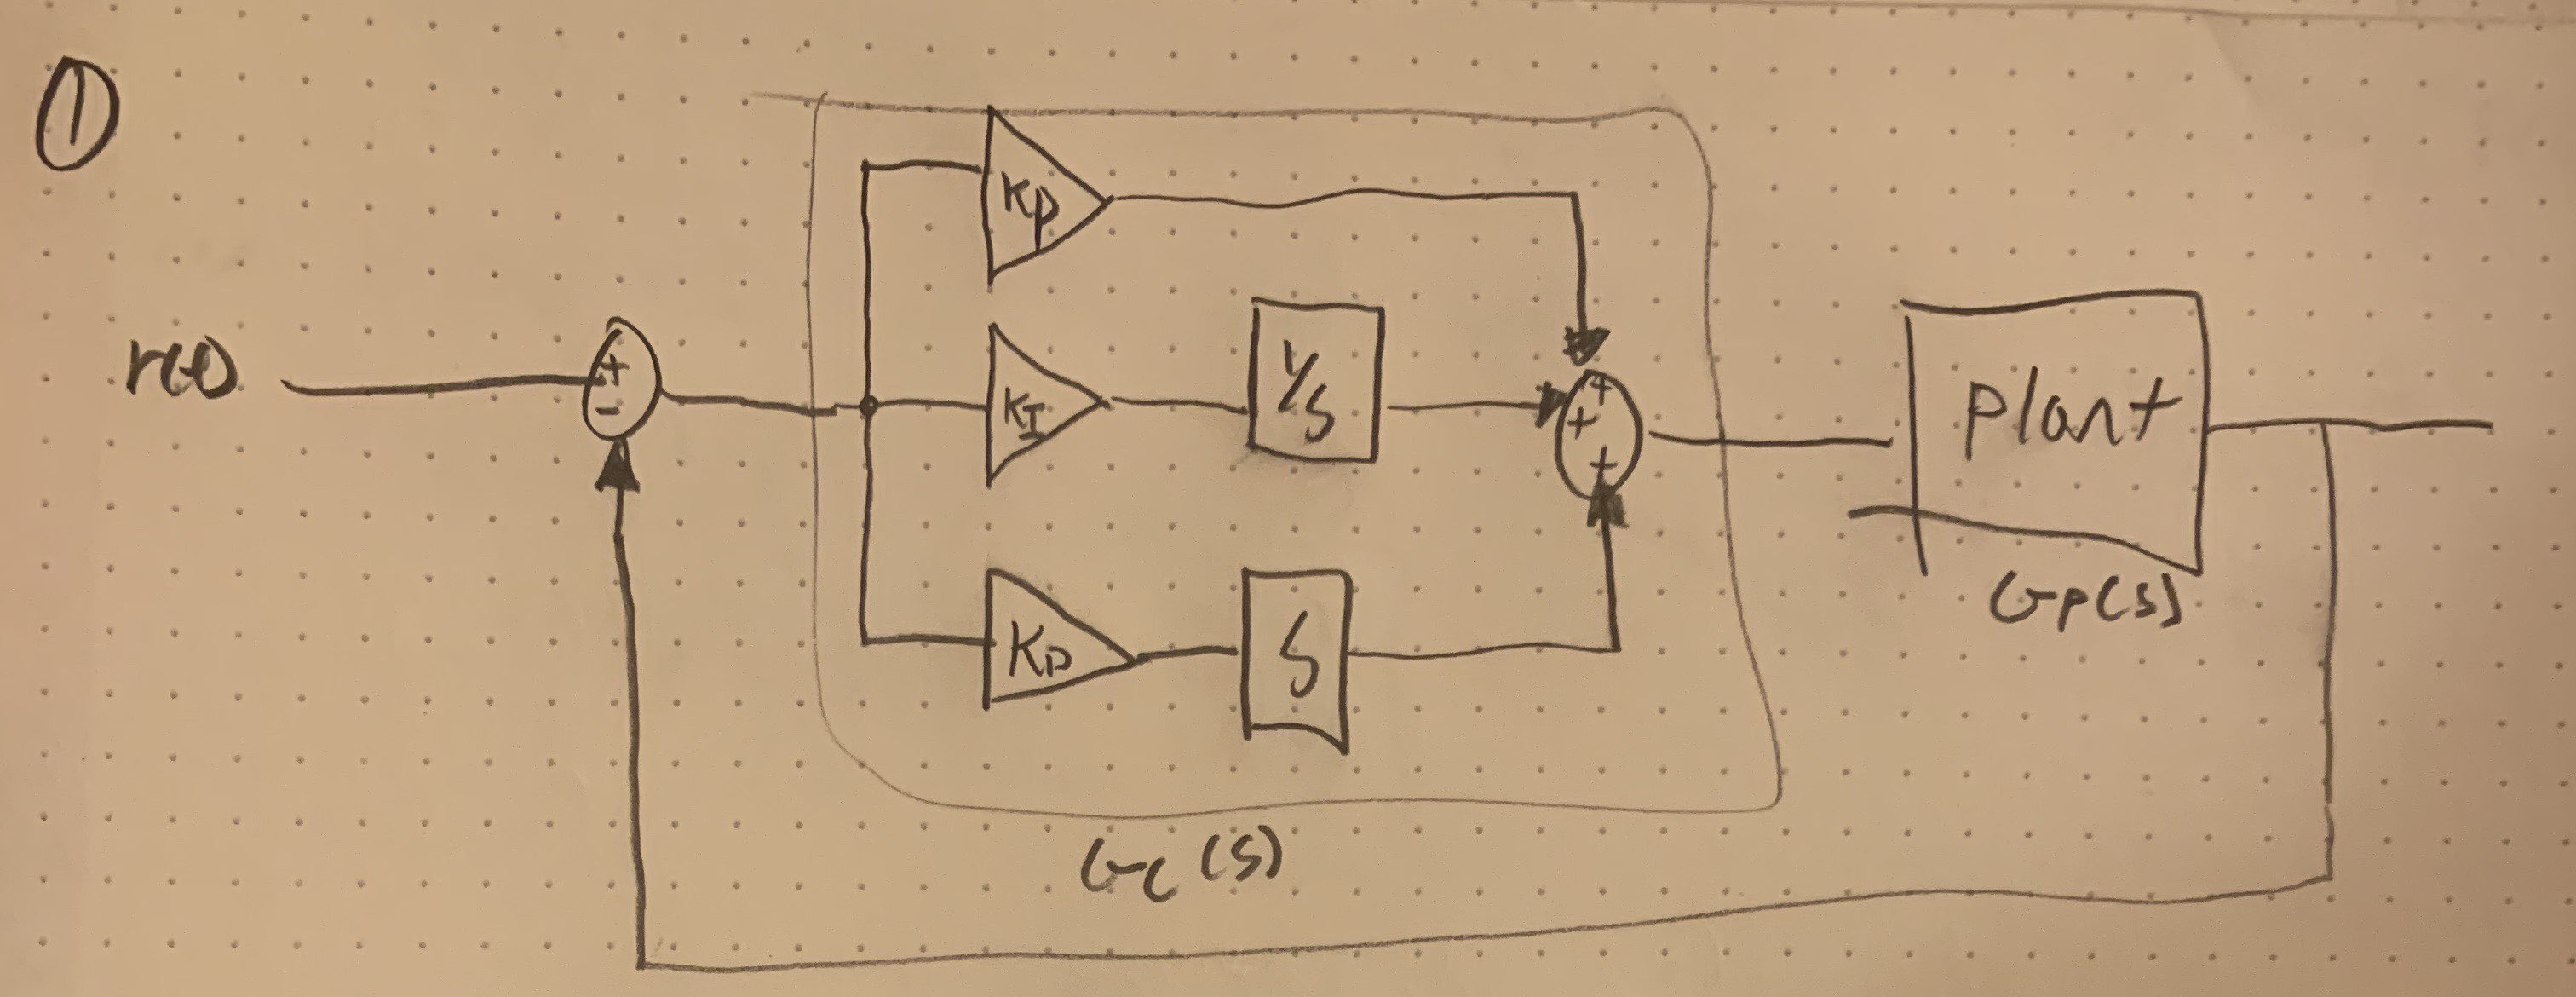 ①
r(t)
+
-
Kp
KI
1/s
KD
S
+
+
+
Plant
Gp(s)
Gc(s)